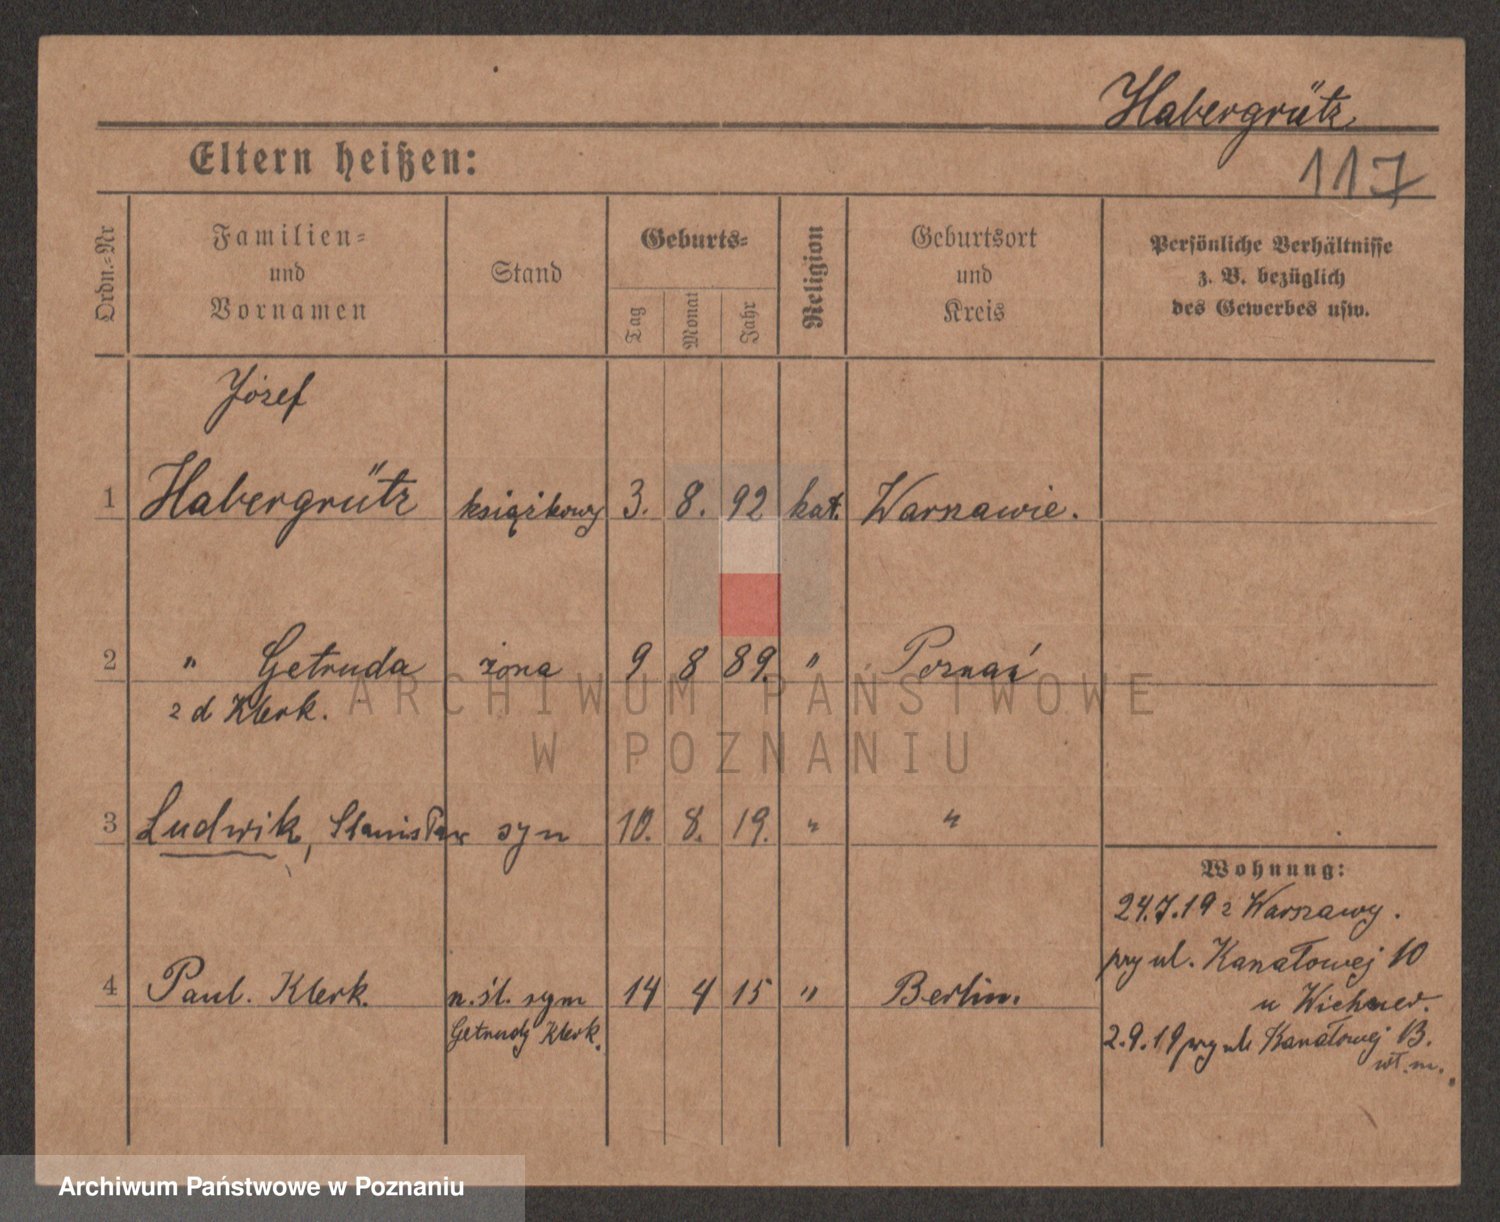 Habergrütz
117
Eltern heißen:
Ordn.-Nr
Familien- und Vornamen
Stand
Geburts-
Tag
Monat
Jahr
Religion
Geburtsort und Kreis
Persönliche Verhältnisse z. B. bezüglich des Gewerbes usw.
Józef
1 Habergrütz książkowy 3. 8. 92 kat. Warszawie.
2 " Getruda żona 9 8 89. " Poznań
z d Klerk.
3 Ludwik, Stanisław syn 10. 8. 19. " "
Wohnung:
24.7.19 z Warszawy.
przy ul. Kanałowej 10
4 Paul. Klerk. n. śl. syn 14 4 15 " Berlin.
u
Getrudy Klerk.
2.9.19 przy ul. Kanałowej 13.
wł. m.
ARCHIWUM PAŃSTWOWE
W POZNANIU
Archiwum Państwowe w Poznaniu